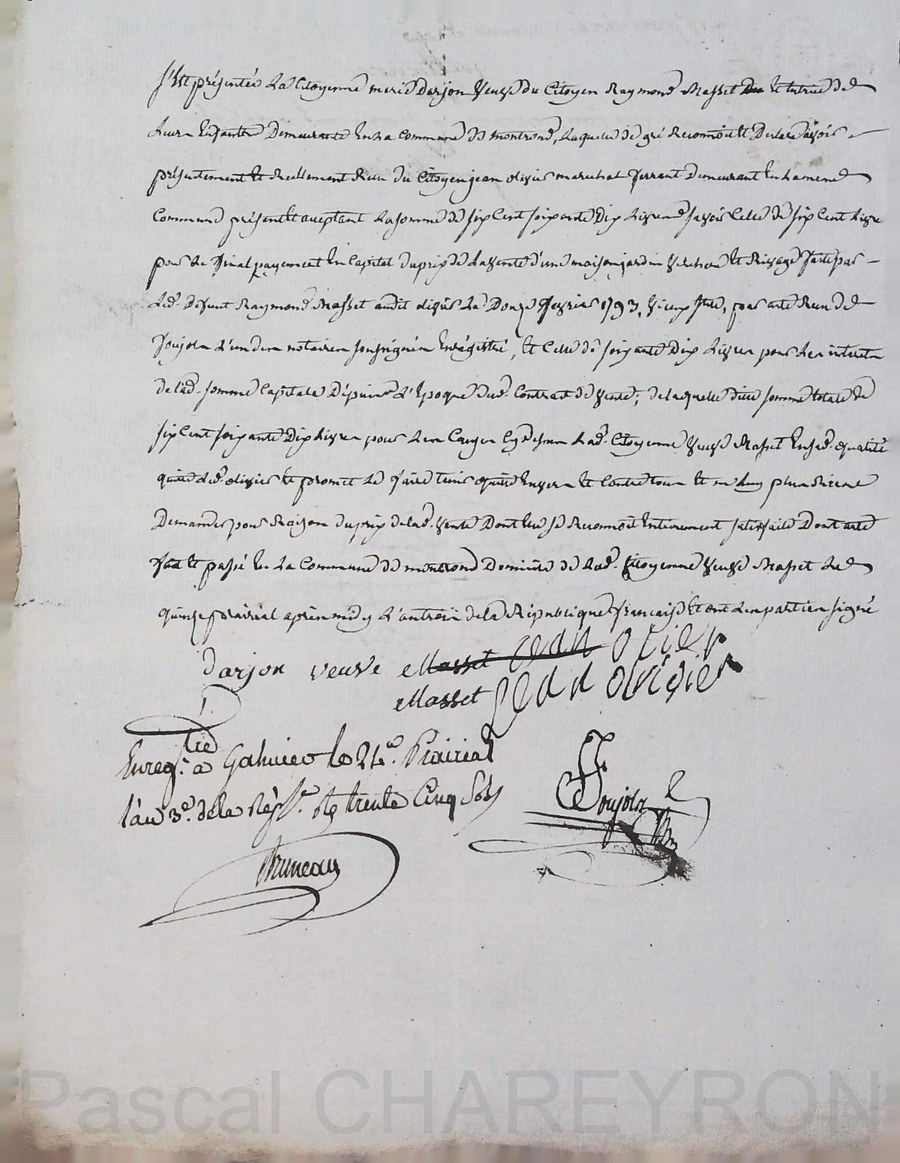 S'Est présentée La Citoyenne marie Darjon Veuve du Citoyen Raymond Masset et tutrice de
Leurs Enfants Demeurante En La Commune de montrond, Laquelle de gré Reconnoit et Declare avoir
présentement et Reellement Reçu du Citoyen jean olivier marechal ferrant Demeurant En La meme
Commune présent et aceptant La somme de six Cent soixante Dix Livres savoir Celle de six Cent Livre
pour Le final payement En Capital du prix de La vente d'une maison jardin et Rivage faite par
Led. Défunt Raymond Masset audit oligier Le Douze fevrier 1793, vieux stile, par acte Reçu de
Soujola L'un des notaires soussignés Enregistré, et Celle de soixante Dix Livres pour Les interets
de lad. somme Capitale Depuis L'Epoque dud. Contract de vente; de laquelle dite somme totale de
six Cent soixante Dix Livres pour Les Causes Cy Dessus Lad. Citoyenne veuve Masset En sad. qualité
quitte led. olivier et promet Le faire tenir quitte Envers et Contre tous et plus Rien
Demander pour Raison du prix de lad. vente Dont Elle se Reconnoit Entierement satisfaite Dont acte
fait et passé En La Commune de montrond Domicile de Lad. Citoyenne veuve Masset Le
quinze prairial après midy L'an trois de la République française et ont Les parties signé
darjon veuve Masset jean
Masset jean oligier
Enregtré a Galmier le 24e. Prairial
l'an 3e. de la Rép. trente Cinq Sols
Soujola
Bruneau
Pascal CHAREYRON